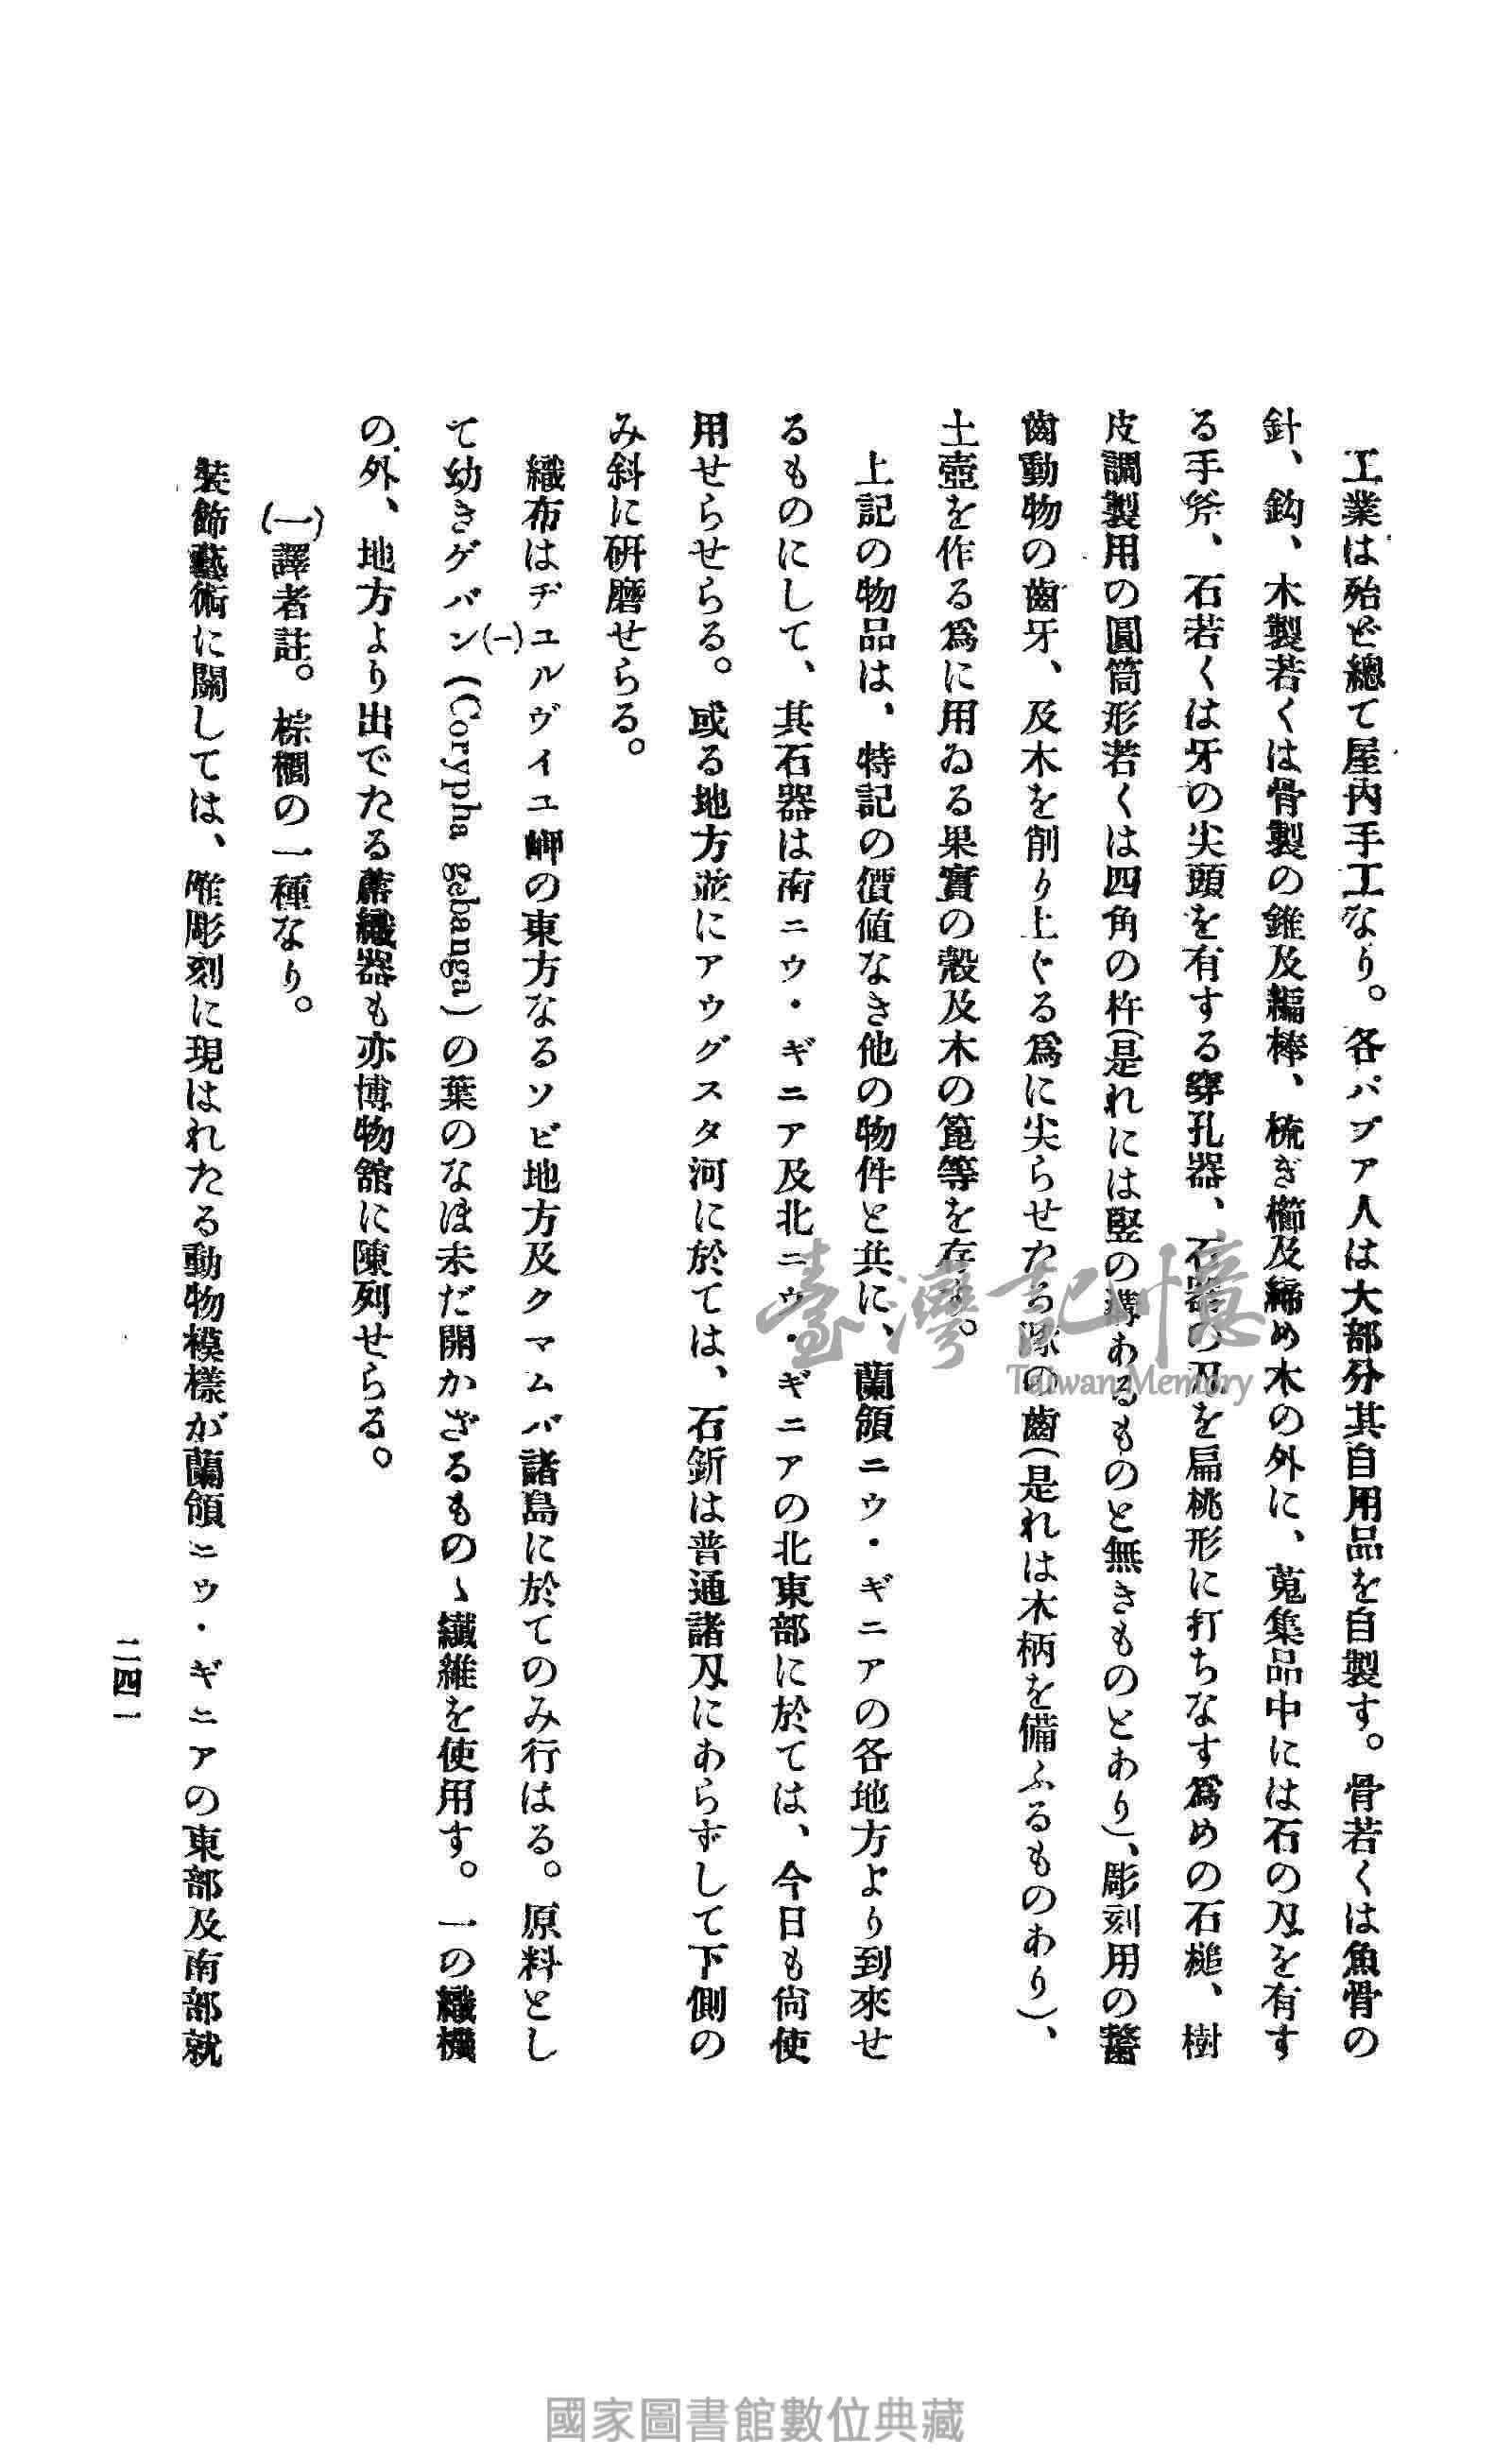 工業は殆ど總て屋內手工なり。各パプア人は大部分其自用品を自製す。骨若くは魚骨の
針、鈎、木製若くは骨製の錐及編棒、梳ぎ櫛及締め木の外に、蒐集品中には石の刀を有す
る手斧、石若くは牙の尖頭を有する穿孔器、石器の刀を扁桃形に打ちなす爲めの石槌、樹
皮調製用の圓筒形若くは四角の杵(是れには竪の溝あるものと無きものとあり)、彫刻用の齧
齒動物の齒牙、及木を削り上ぐる爲に尖らせたる豚の齒(是れは木柄を備ふるものあり)、
土壺を作る爲に用ゐる果實の殼及木の篦等を存す。
上記の物品は、特記の價値なき他の物件と共に、蘭領ニウ・ギニアの各地方より到來せ
るものにして、其石器は南ニウ・ギニア及北ニウ・ギニアの北東部に於ては、今日も尙使
用せらせらる。或る地方並にアウグスタ河に於ては、石釿は普通諸刀にあらずして下側の
み斜に研磨せらる。
織布はヂユルヴイユ岬の東方なるソビ地方及クマムバ諸島に於てのみ行はる。原料とし
て幼きゲバン(一)(Corypha gebanga)の葉のなほ未だ開かざるものゝ纎維を使用す。一の織機
の外、地方より出でたる蓆織器も亦博物舘に陳列せらる。
(一)譯者註。棕櫚の一種なり。
裝飾藝術に關しては、唯彫刻に現はれたる動物模樣が蘭領ニウ・ギニアの東部及南部就
二四一
臺灣記憶
Taiwan Memory
國家圖書館數位典藏